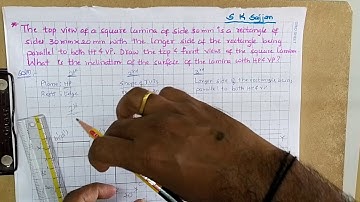 S K Sajjan
* The top view of a square lamina of side 30mm is a rectangle of
side 30mm×20mm with the longer side of the rectangle being
parallel to both HP & VP. Draw the top & front view of the square lamina
What is the inclination of the surface of the lamina with HP & VP?
1st 2nd 3rd
Plane: HP Shape of TV Longer side of the rectangle being
Rest: Edge parallel to both HP & VP